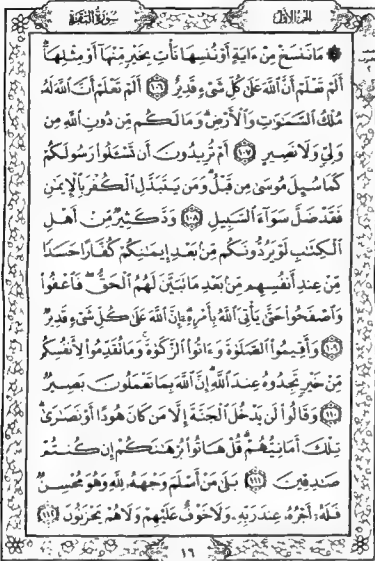 الجزء الأول
سورة البقرة
۞ مَا نَنسَخْ مِنْ ءَايَةٍ أَوْ نُنسِهَا نَأْتِ بِخَيْرٍ مِّنْهَآ أَوْ مِثْلِهَآ
أَلَمْ تَعْلَمْ أَنَّ ٱللَّهَ عَلَىٰ كُلِّ شَىْءٍ قَدِيرٌ ١٠٦ أَلَمْ تَعْلَمْ أَنَّ ٱللَّهَ لَهُۥ
مُلْكُ ٱلسَّمَٰوَٰتِ وَٱلْأَرْضِ وَمَا لَكُم مِّن دُونِ ٱللَّهِ مِن
وَلِىٍّ وَلَا نَصِيرٍ ١٠٧ أَمْ تُرِيدُونَ أَن تَسْـَٔلُوا۟ رَسُولَكُمْ
كَمَا سُئِلَ مُوسَىٰ مِن قَبْلُ وَمَن يَتَبَدَّلِ ٱلْكُفْرَ بِٱلْإِيمَٰنِ
فَقَدْ ضَلَّ سَوَآءَ ٱلسَّبِيلِ ١٠٨ وَدَّ كَثِيرٌ مِّنْ أَهْلِ
ٱلْكِتَٰبِ لَوْ يَرُدُّونَكُم مِّنۢ بَعْدِ إِيمَٰنِكُمْ كُفَّارًا حَسَدًا
مِّنْ عِندِ أَنفُسِهِم مِّنۢ بَعْدِ مَا تَبَيَّنَ لَهُمُ ٱلْحَقُّ فَٱعْفُوا۟
وَٱصْفَحُوا۟ حَتَّىٰ يَأْتِىَ ٱللَّهُ بِأَمْرِهِۦٓ إِنَّ ٱللَّهَ عَلَىٰ كُلِّ شَىْءٍ قَدِيرٌ
١٠٩ وَأَقِيمُوا۟ ٱلصَّلَوٰةَ وَءَاتُوا۟ ٱلزَّكَوٰةَ وَمَا تُقَدِّمُوا۟ لِأَنفُسِكُم
مِّنْ خَيْرٍ تَجِدُوهُ عِندَ ٱللَّهِ إِنَّ ٱللَّهَ بِمَا تَعْمَلُونَ بَصِيرٌ
١١٠ وَقَالُوا۟ لَن يَدْخُلَ ٱلْجَنَّةَ إِلَّا مَن كَانَ هُودًا أَوْ نَصَٰرَىٰ
تِلْكَ أَمَانِيُّهُمْ قُلْ هَاتُوا۟ بُرْهَٰنَكُمْ إِن كُنتُمْ
صَٰدِقِينَ ١١١ بَلَىٰ مَنْ أَسْلَمَ وَجْهَهُۥ لِلَّهِ وَهُوَ مُحْسِنٌ
فَلَهُۥٓ أَجْرُهُۥ عِندَ رَبِّهِۦ وَلَا خَوْفٌ عَلَيْهِمْ وَلَا هُمْ يَحْزَنُونَ ١١٢
١٦